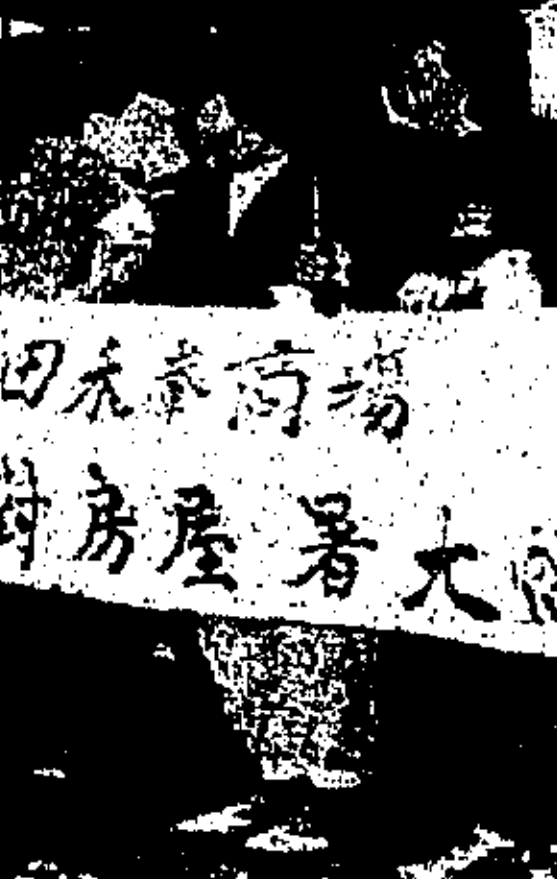 田禾 商場
村房屋署大